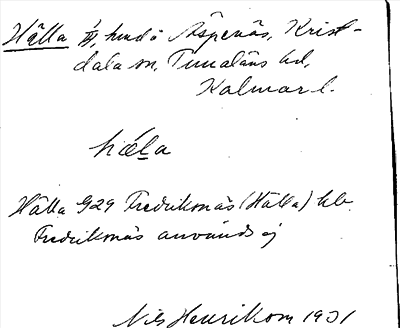 Hålla lh, hmd ö Äspenäs, Krist-
dala sn, Tunaläns hd,
Kalmar l.
hå̀l̀a
Hålla G29 Fredriksnäs (Hålla) kbr
Fredriksnäs används ej
Nils Henrikson 1931